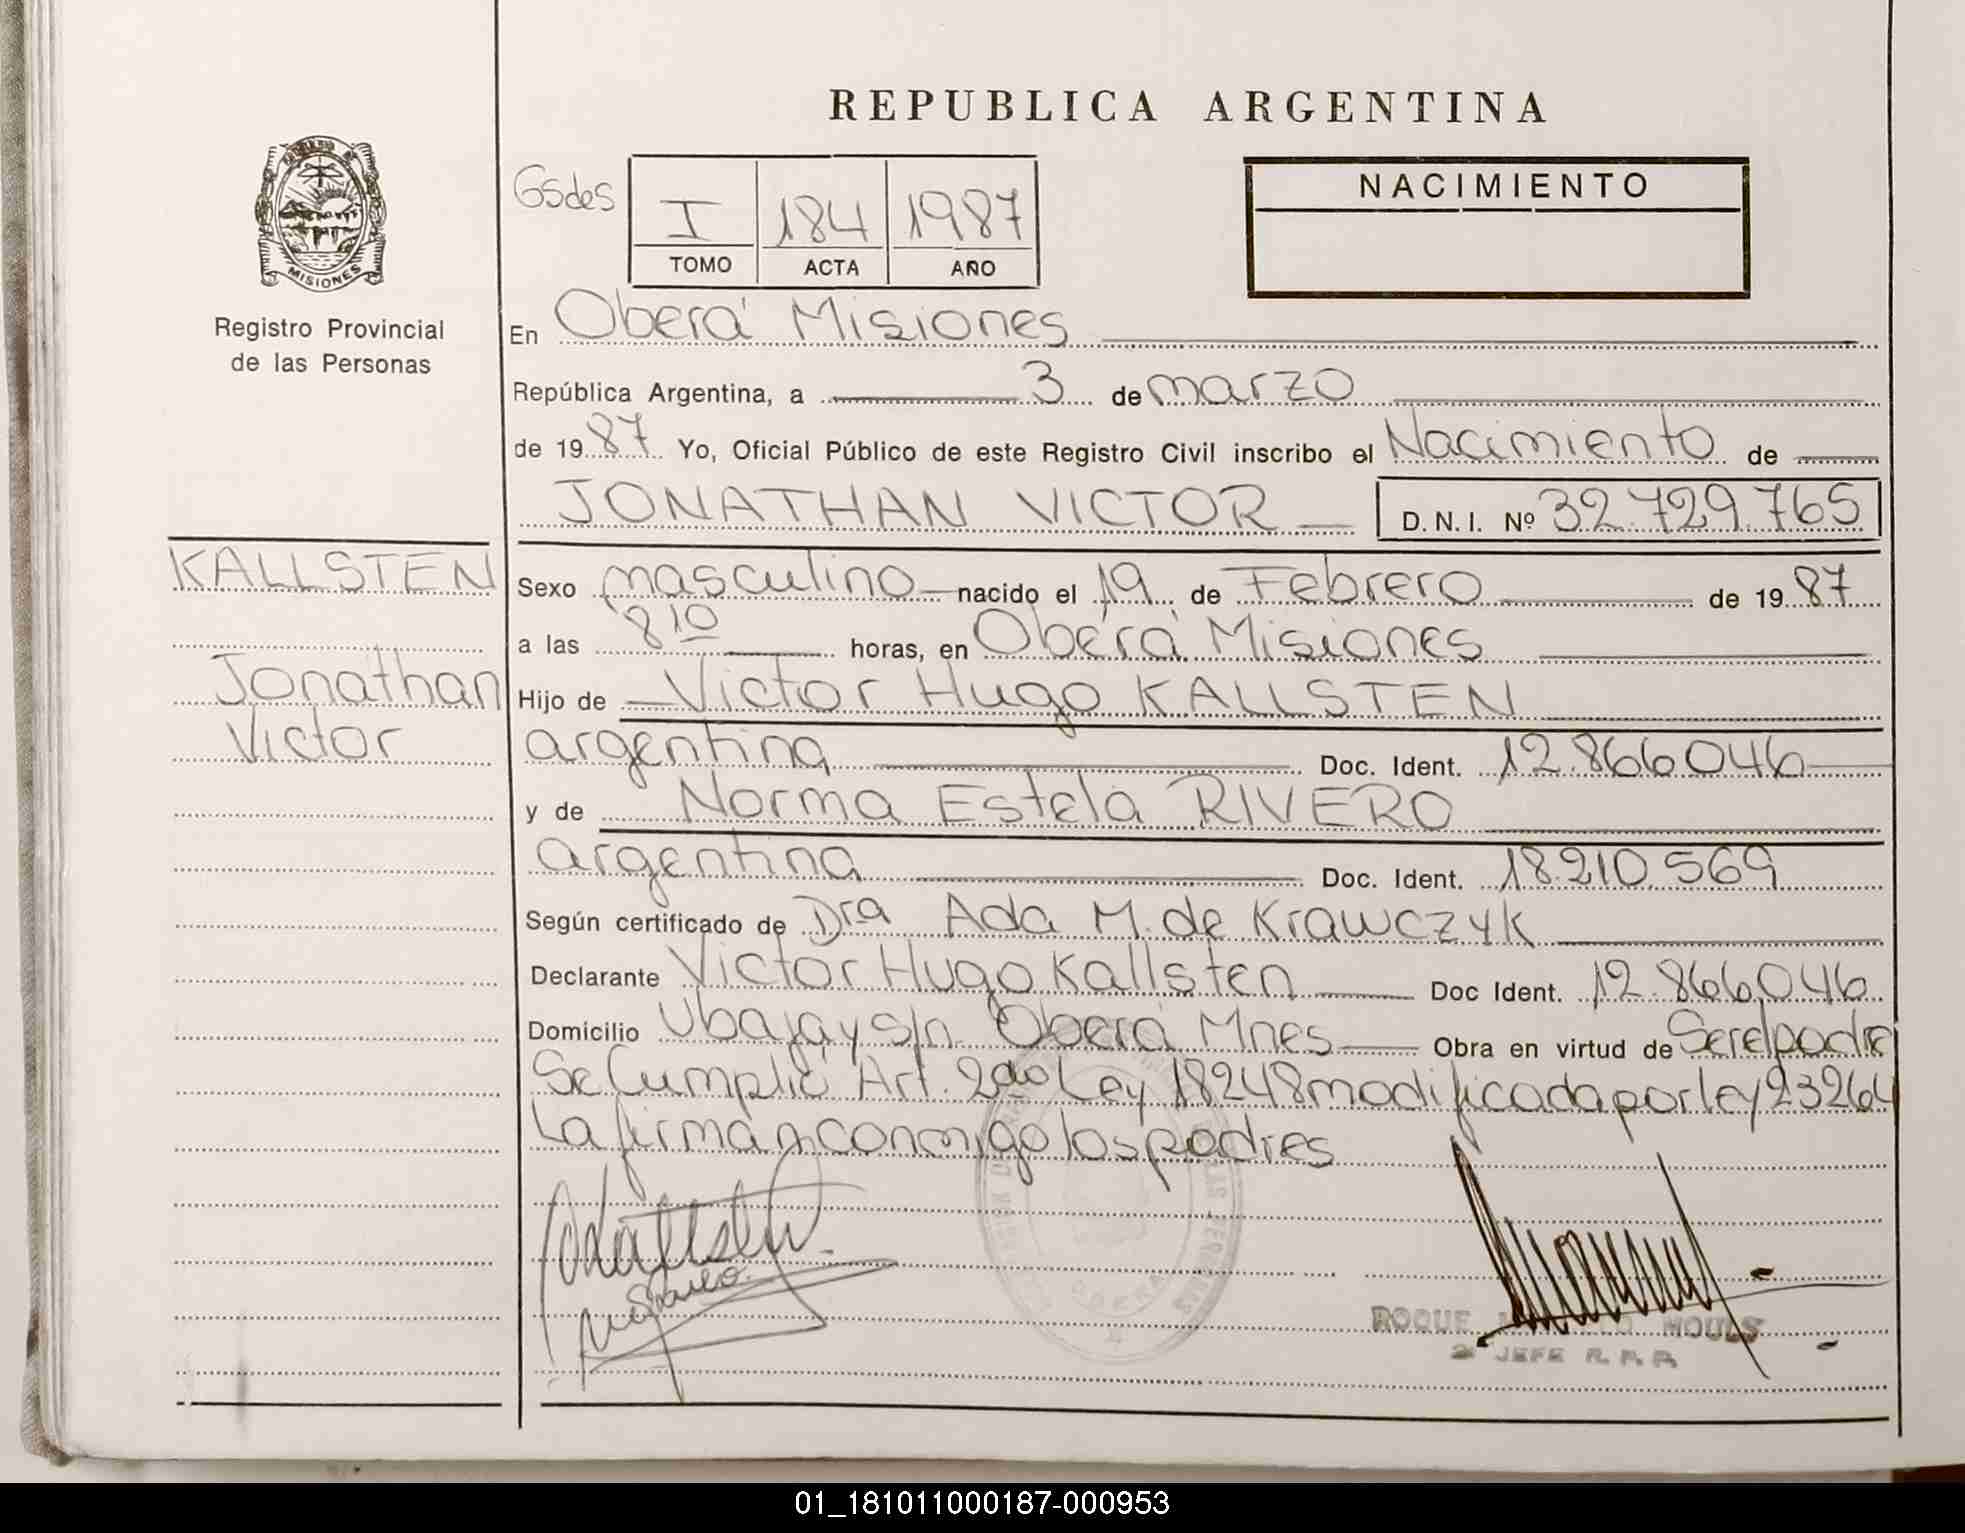 REPUBLICA ARGENTINA
NACIMIENTO
Gsdes
I 184 1987
TOMO ACTA AÑO
MISIONES
Registro Provincial
de las Personas
En Oberá Misiones
República Argentina, a 3 de marzo
de 1987 Yo, Oficial Público de este Registro Civil inscribo el Nacimiento de
JONATHAN VICTOR D.N.I. Nº 32.729.765
KALLSTEN
Jonathan
Victor
Sexo masculino nacido el 19 de Febrero de 1987
a las 8 10 horas, en Oberá Misiones
Hijo de Victor Hugo KALLSTEN
argentina Doc. Ident. 12.866046
y de Norma Estela RIVERO
argentina Doc. Ident. 18.210.569
Según certificado de Dra Ada M. de Krawczyk
Declarante Victor Hugo Kallsten Doc Ident. 12.866.046
Domicilio Ubajay s/n. Oberá Mnes Obra en virtud de Ser el padre
Se Cumplió Art. 2do Ley 18248 modificada por ley 23264
La firman conmigo los padres
Kallsten
OBERA
ROQUE MOULS
2º JEFE R. P. P.
01_181011000187-000953